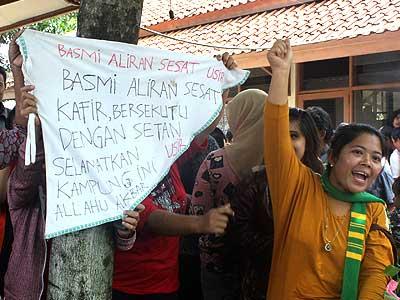 BASMI ALIRAN SESAT USIR
BASMI ALIRAN SESAT
KAFIR, BERSEKUTU
DENGAN SETAN
SELAMATKAN USIR
KAMPUNG INI
ALLAHU AKBAR